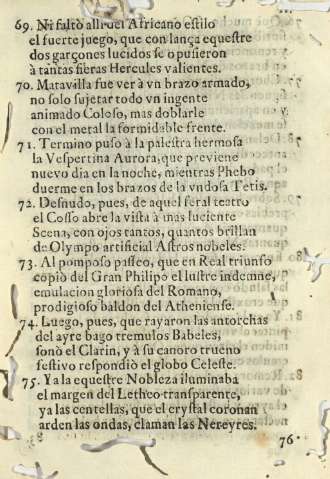 69. Ni faltò alli del Africano estilo
el fuerte juego, que con lança equestre
dos garçones lucidos se opusieron
à tantas fieras Hercules valientes.
70. Matavilla fue ver à vn brazo armado,
no solo sujetar todo vn ingente
animado Coloso, mas doblarle
con el metal la formidable frente.
71. Termino puso à la palestra hermosa
la Vespertina Aurora, que previene
nuevo dia en la noche, mientras Phebo
duerme en los brazos de la vndosa Tetis.
72. Desnudo, pues, de aquel feral teatro
el Cosso abre la vista à mas luciente
Scena, con ojos tantos, quantos brillan
de Olympo artificial Astros nobeles.
73. Al pomposo passeo, que en Real triunfo
copiò del Gran Philipo el lustre indemne,
emulacion gloriosa del Romano,
prodigioso baldon del Atheniense.
74. Luego, pues, que rayaron las antorchas
del ayre bago tremulos Babeles,
sonò el Clarin, y à su canoro trueno
festivo respondiò el globo Celeste.
75. Ya la equestre Nobleza iluminaba
el margen del Letheo transparente,
ya las centellas, que el crystal coronan
arden las ondas, claman las Nereyres.
76.